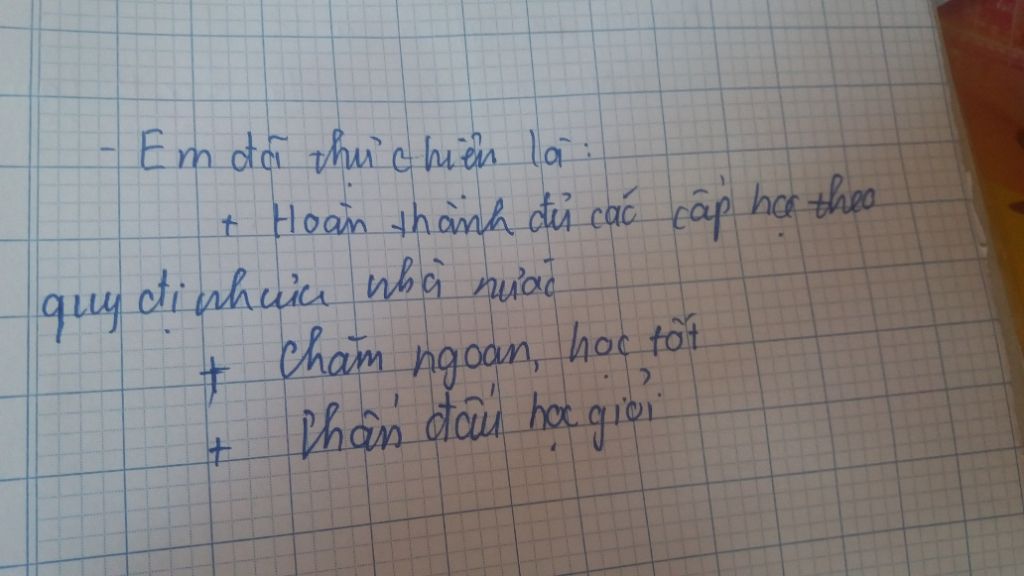 - Em đã thực hiện là:
+ Hoàn thành đủ các cấp học theo
quy định của nhà nước
+ chăm ngoan, học tốt
+ Phấn đấu học giỏi